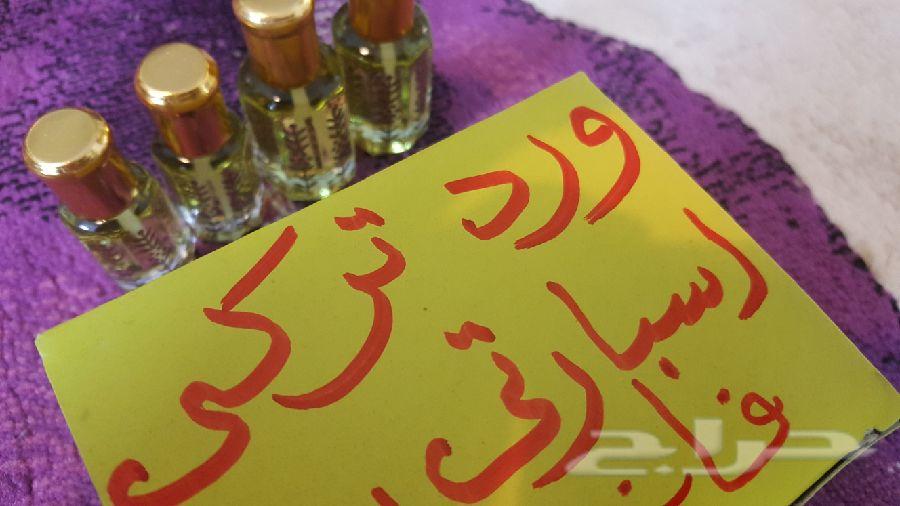 ورد تركي
اسبارتي
حراج